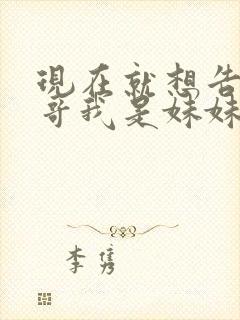 現在就想告
哥我是妹妹
李隽